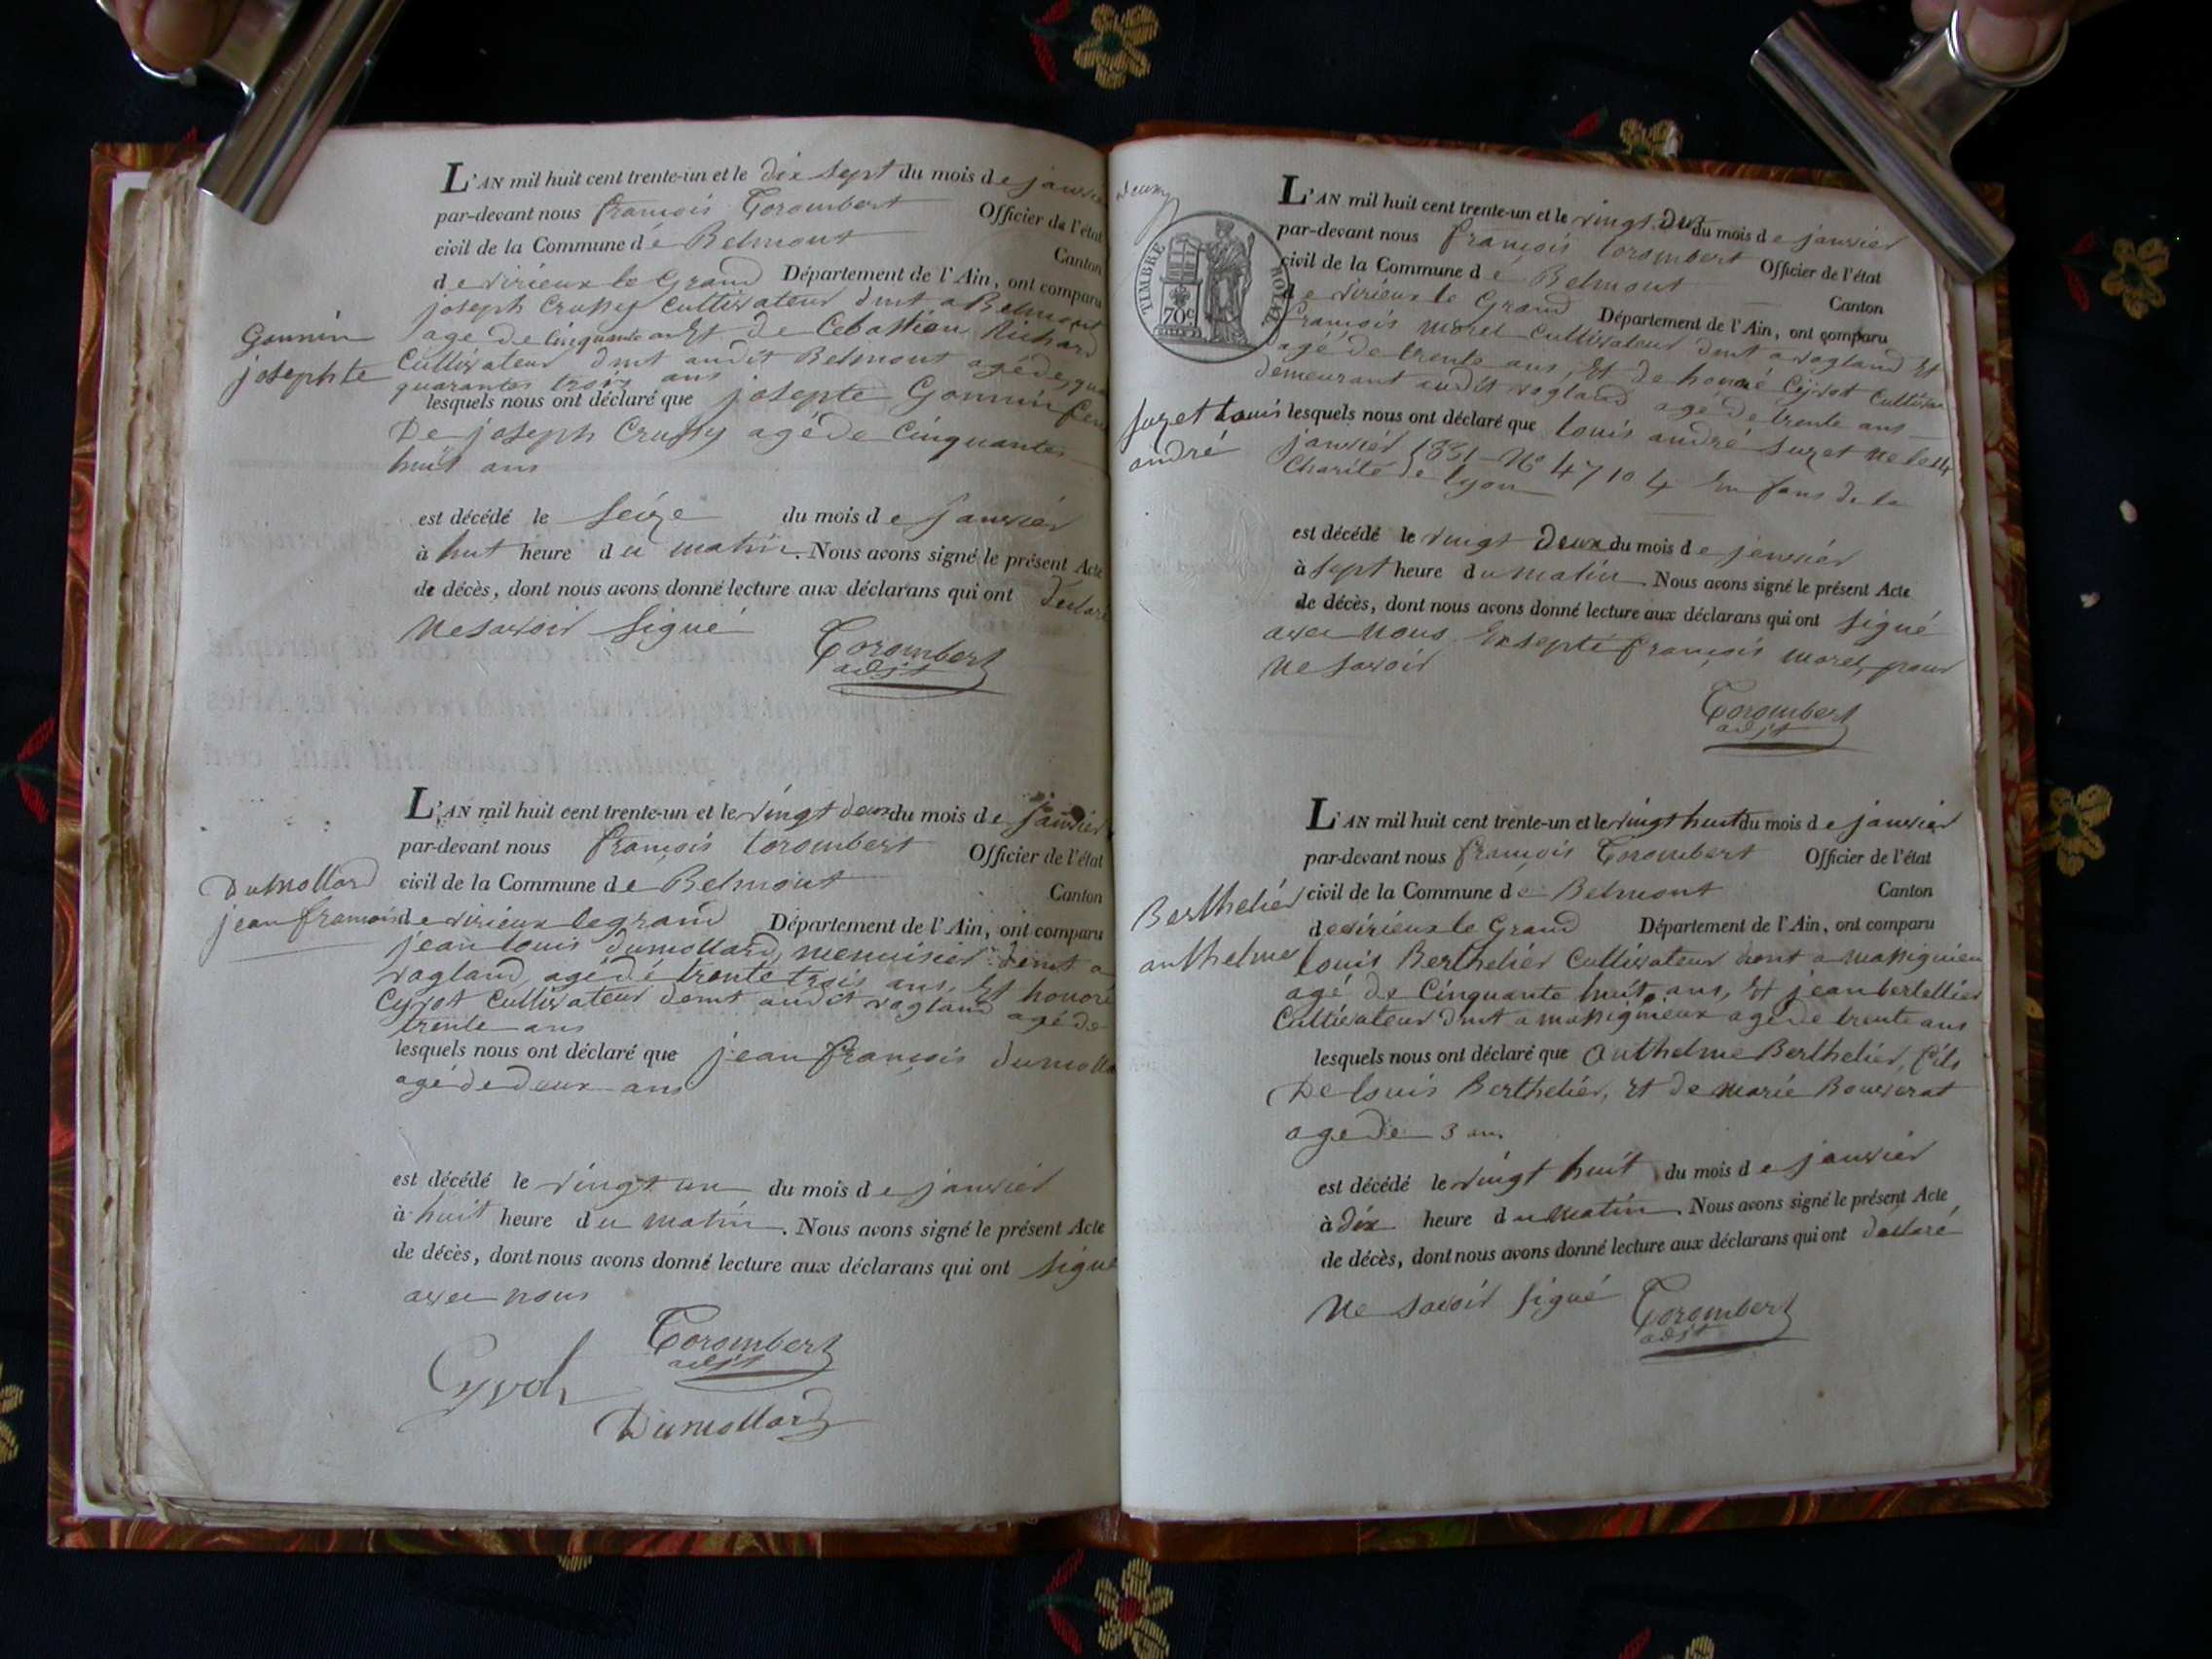 L'AN mil huit cent trente-un et le dix sept du mois de janvier
par-devant nous françois Corombert Officier de l'état
civil de la Commune de Belmont Canton
de virieux le Grand Département de l'Ain, ont comparu
joseph Crussy Cultivateur dmt a Belmont
agé de Cinquante an Et de Cebastien Richard
Cultivateur dmt audit Belmont agéde
quarantes trois ans
lesquels nous ont déclaré que josepte Gonnin
De joseph Crussy agéde Cinquantes
huit ans
Gonnin
josephte
est décédé le Seize du mois de janvier
à huit heure du matin. Nous avons signé le présent Acte
de décès, dont nous avons donné lecture aux déclarans qui ont déclaré
ne savoir signé
Corombert
adjt
L'AN mil huit cent trente-un et le vingt deux du mois de janvier
par-devant nous françois Corombert Officier de l'état
civil de la Commune de Belmont Canton
de virieux le grand Département de l'Ain, ont comparu
jean louis dumollard, menuisier demt a
vogland, agéde trente trois ans, Et honoré
Cyvot Cultivateur demt audit vogland agéde
trente ans
lesquels nous ont déclaré que jean françois dumolla
agéde deux ans
Dumollard
jean francois
est décédé le vingt un du mois de janvier
à huit heure du matin. Nous avons signé le présent Acte
de décès, dont nous avons donné lecture aux déclarans qui ont signé
avec nous
Corombert
adjt
Cyvot
Dumollard
TIMBRE ROYAL
70c
L'AN mil huit cent trente-un et le vingt deux du mois de janvier
par-devant nous françois Corombert Officier de l'état
civil de la Commune de Belmont Canton
de virieux le Grand Département de l'Ain, ont comparu
françois morel Cultivateur demt a vogland Et
agé de trente ans, Et de honoré Cyvot Cultiv
demeurant audit vogland agé de trente ans
lesquels nous ont déclaré que louis andré suzet né le 14
janvier 1831 No 47104 Enfans de la
Charité de lyon
suzet Louis
andré
est décédé le vingt deux du mois de janvier
à sept heure du matin. Nous avons signé le présent Acte
de décès, dont nous avons donné lecture aux déclarans qui ont signé
avec nous Exsepté françois morel, pour
ne savoir
Corombert
adjt
L'AN mil huit cent trente-un et le vingt huit du mois de janvier
par-devant nous françois Corombert Officier de l'état
civil de la Commune de Belmont Canton
de virieux le Grand Département de l'Ain, ont comparu
louis Berthelier Cultivateur demt a massignieu
agé de Cinquante huit ans, Et jean bertellier
Cultivateur dmt a massignieux agéde trente ans
lesquels nous ont déclaré que Anthelme Berthelier, fils
De louis Berthelier, Et de marie Bouverat
agéde 3 ans
Berthelier
anthelme
est décédé le vingt huit du mois de janvier
à dix heure du matin. Nous avons signé le présent Acte
de décès, dont nous avons donné lecture aux déclarans qui ont declaré
Ne savoir signé
Corombert
adjt